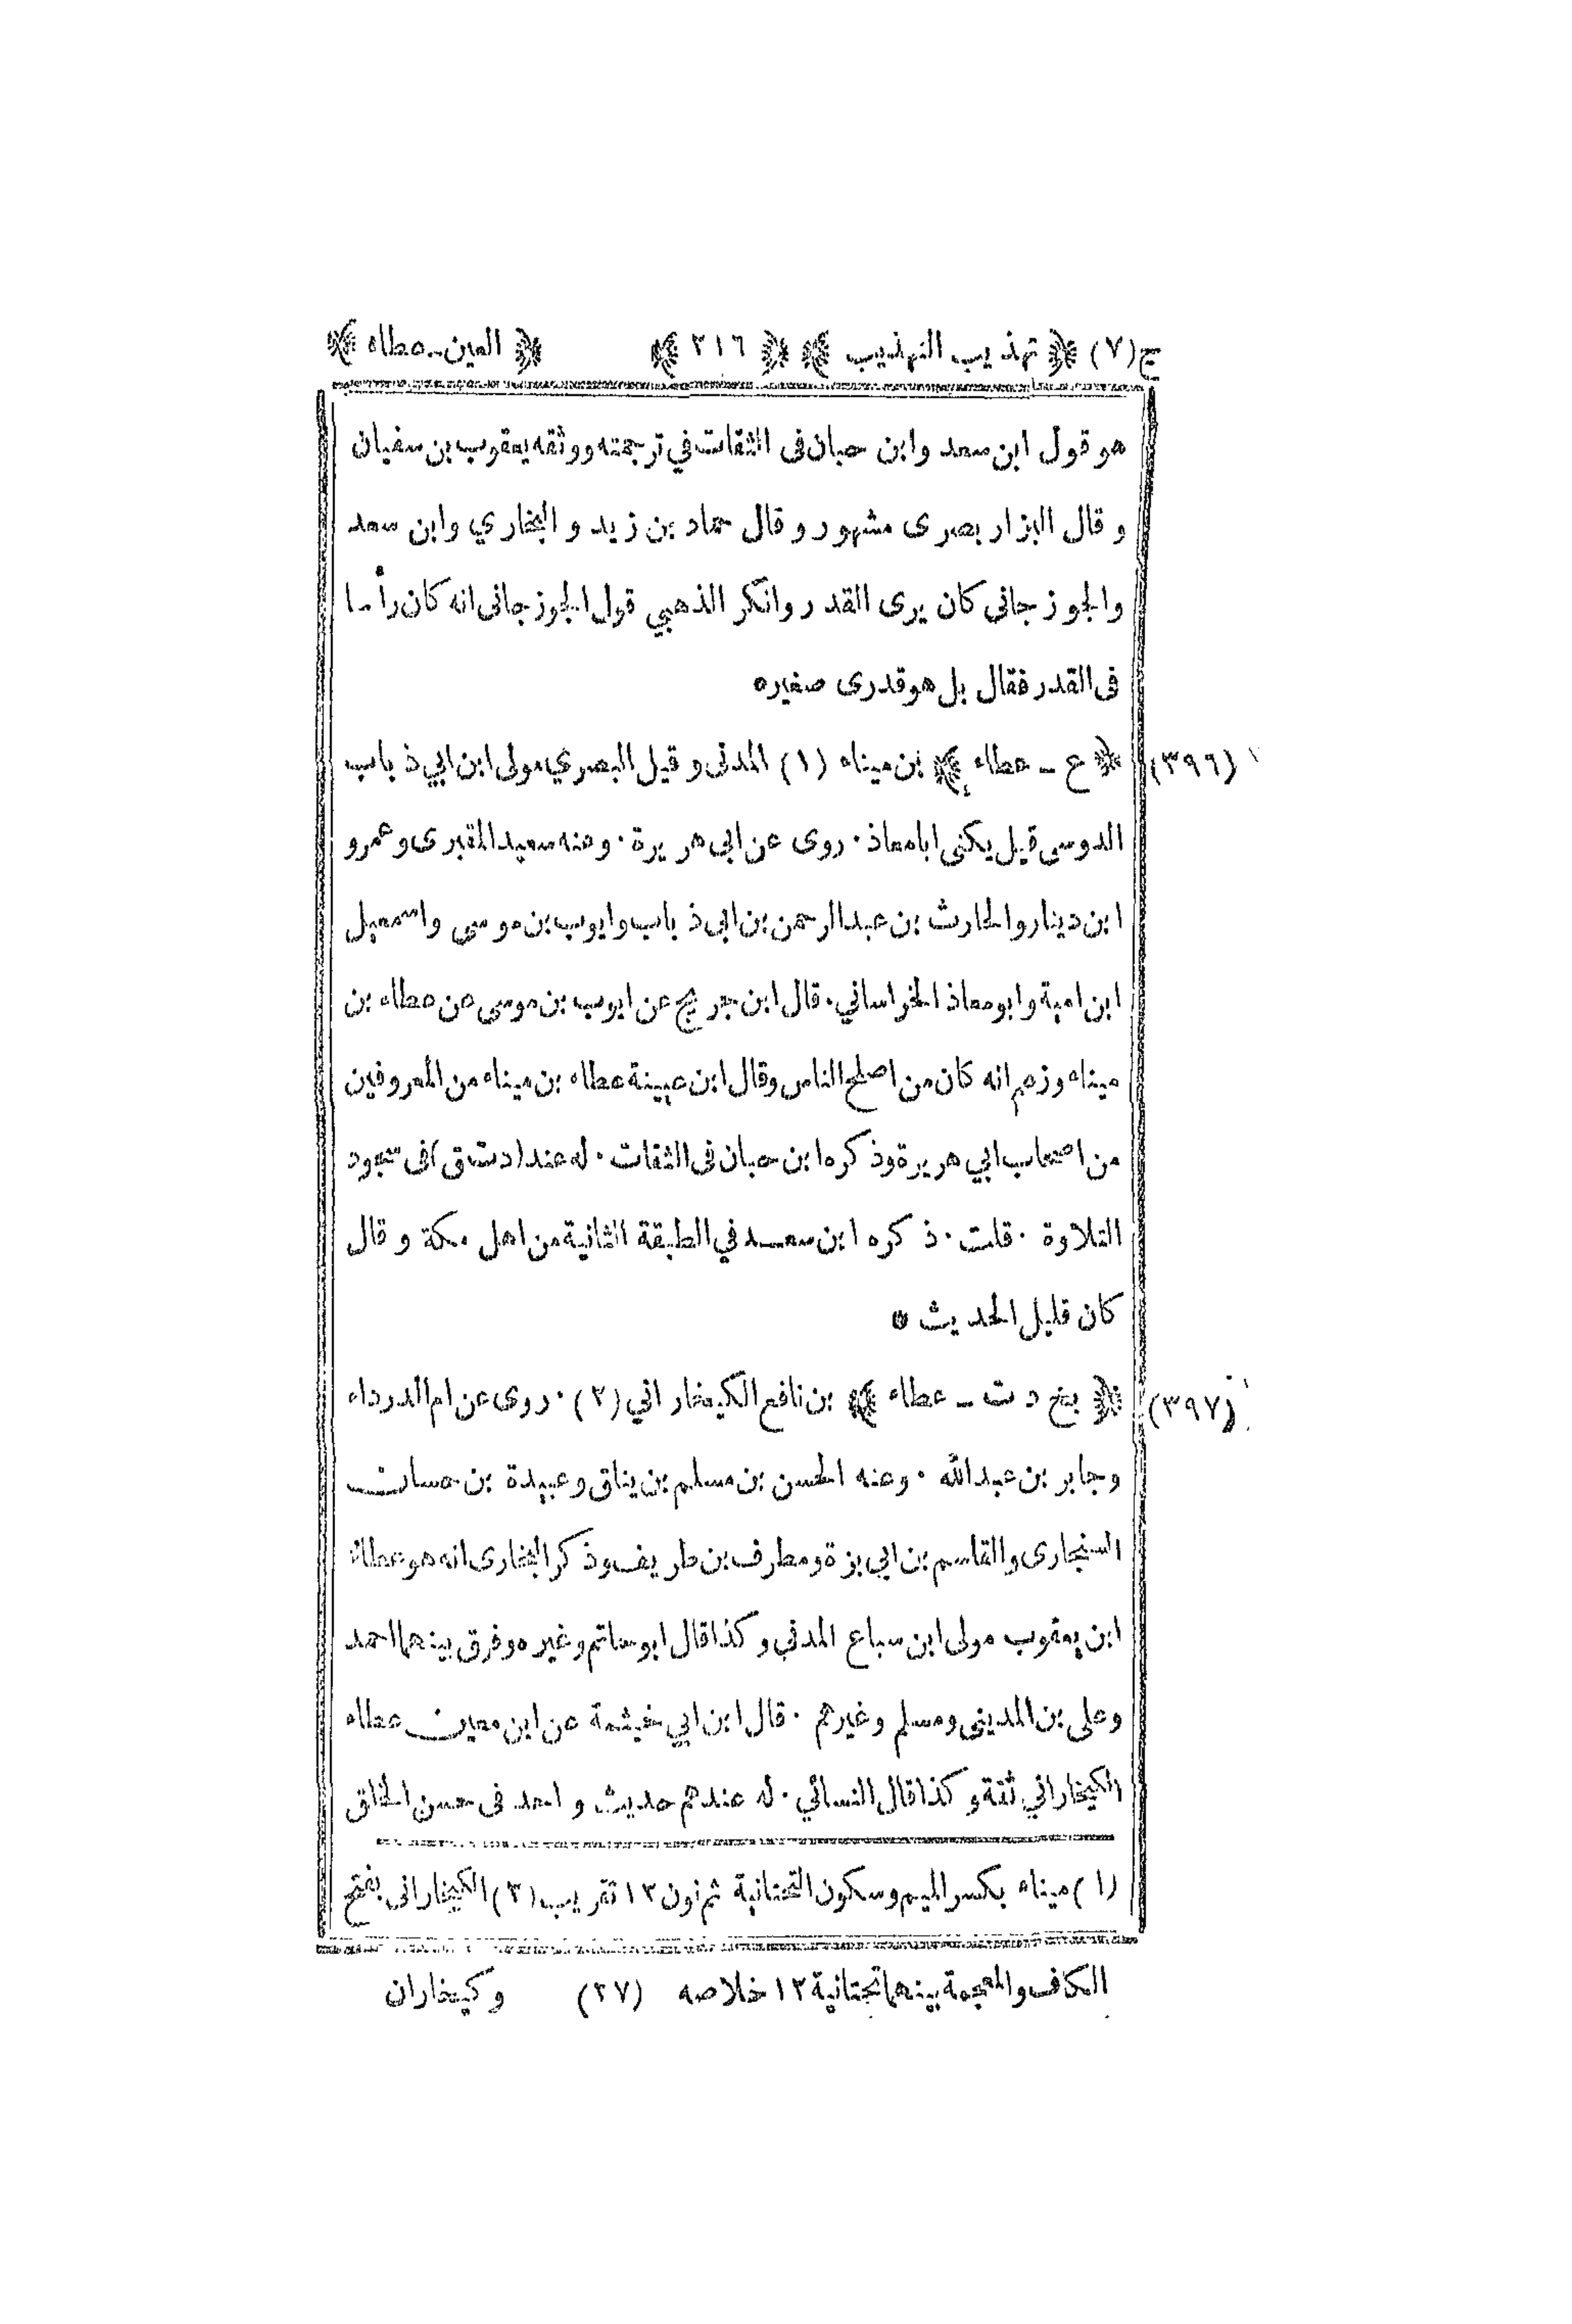 ج (٧) ﴿ تهذيب التهذيب ﴾ ﴿ ٢١٦ ﴾ ﴿ العين - عطاء ﴾
هو قول ابن سعد وابن حبان فى الثقات في ترجمته ووثقه يعقوب بن سفيان
و قال البزار بصرى مشهور و قال حماد بن زيد و البخاري وابن سعد
والجوزجانى كان يرى القدر وانكر الذهبي قول الجوزجانى انه كان رأسا
فى القدر فقال بل هو قدرى صغير ٥
(٣٩٦) ﴿ ع - عطاء ﴾ بن ميناء (١) المدنى و قيل البصري مولى ابن ابي ذباب
الدوسى قيل يكنى ابا معاذ . روى عن ابى هريرة . وعنه سعيد المقبرى وعمرو
ابن دينار والحارث بن عبد الرحمن بن ابى ذباب وايوب بن موسى واسمعيل
ابن امية وابو معاذ الخراساني . قال ابن جريج عن ايوب بن موسى عن عطاء بن
ميناء وزعم انه كان من اصلح الناس وقال ابن عيينة عطاء بن ميناء من المعروفين
من اصحاب ابي هريرة وذكره ابن حبان فى الثقات . له عند (دت ق) فى سجود
التلاوة . قلت . ذكره ابن سعد في الطبقة الثانية من اهل مكة و قال
كان قليل الحديث ٥
(٣٩٧) ﴿ بخ د ت - عطاء ﴾ بن نافع الكيخاراني (٢) . روى عن ام الدرداء
وجابر بن عبد الله . وعنه الحسن بن مسلم بن يناق وعبيدة بن حسان
السنجارى والقاسم بن ابي بزة ومطرف بن طريف وذكر البخارى انه هو عطاء
ابن يعقوب مولى ابن سباع المدني وكذا قال ابو حاتم وغيره وفرق بينهما احمد
وعلى بن المدينى ومسلم وغيرهم . قال ابن ابي خيثمة عن ابن معين عطاء
الكيخاراني ثقة وكذا قال النسائي . له عندهم حديث واحد فى حسن الخلق
(١) ميناء بكسر الميم وسكون التحتانية ثم نون ١٢ تقريب (٢) الكيخارانى بفتح
الكاف والمعجمة بينهما تحتانية ١٢ خلاصه (٢٧) وكيخاران